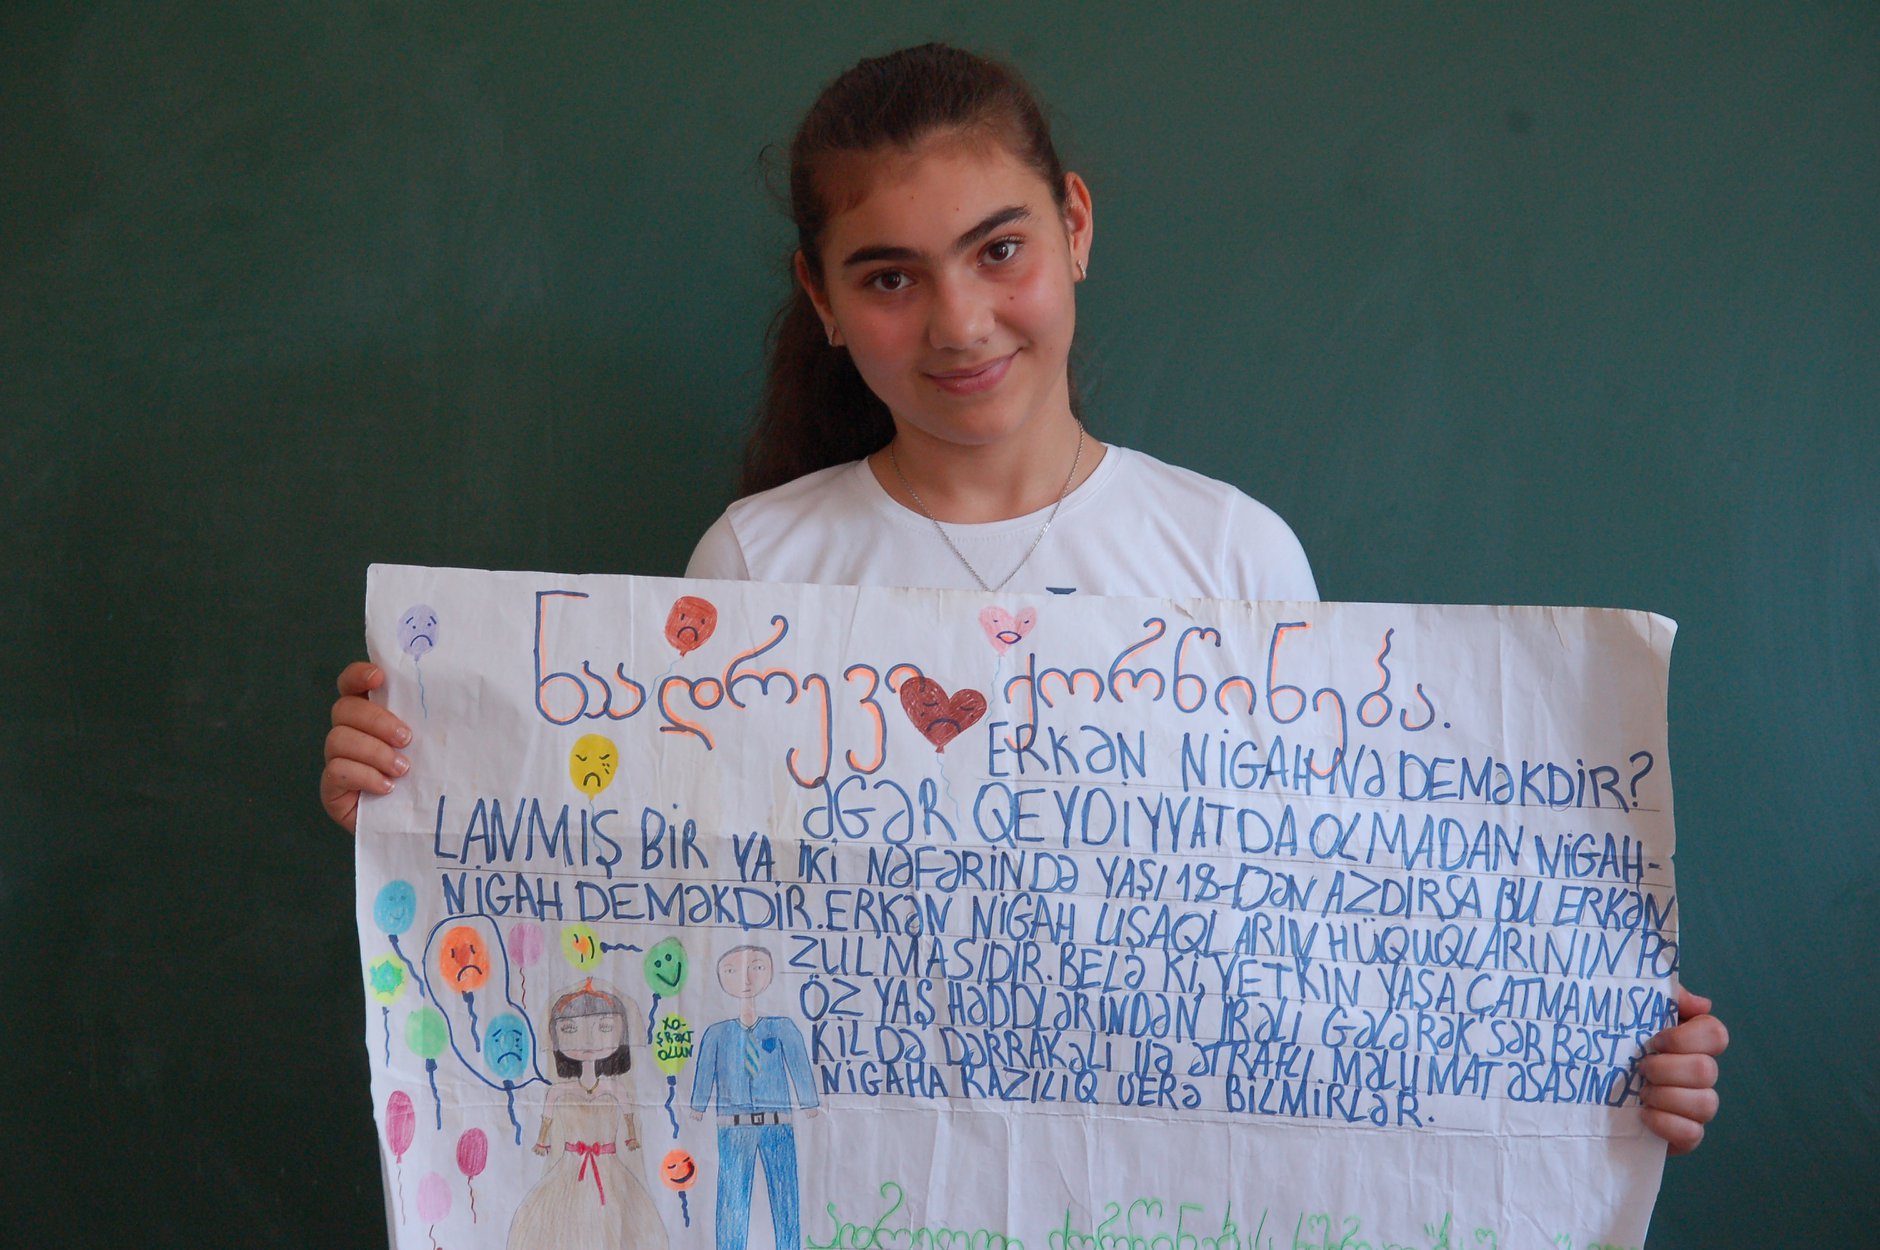 ნაადრევი ქორწინება.
ERKƏN NİGAH NƏ DEMƏKDİR?
ƏGƏR QEYDİYYATDA OLMADAN NİGAH-
LANMIŞ BİR YA İKİ NƏFƏRİNDƏ YAŞI 18-DƏN AZDIRSA BU ERKƏN
NİGAH DEMƏKDİR. ERKƏN NİGAH UŞAQLARIN HÜQUQLARININ PO-
ZULMASIDIR. BELƏ Kİ, YETKİN YAŞA ÇATMAMIŞLAR
ÖZ YAŞ HƏDDLƏRİNDƏN İRƏLİ GƏLƏRƏK SƏRBƏST Ş
KİLDƏ DƏRRAKƏLİ VƏ ƏTRAFLI MƏLUMAT ƏSASINDA
NİGAHA RAZILIQ VERƏ BİLMİRLƏR.
XO-
ŞBƏXT
OLUN
ქორწინების